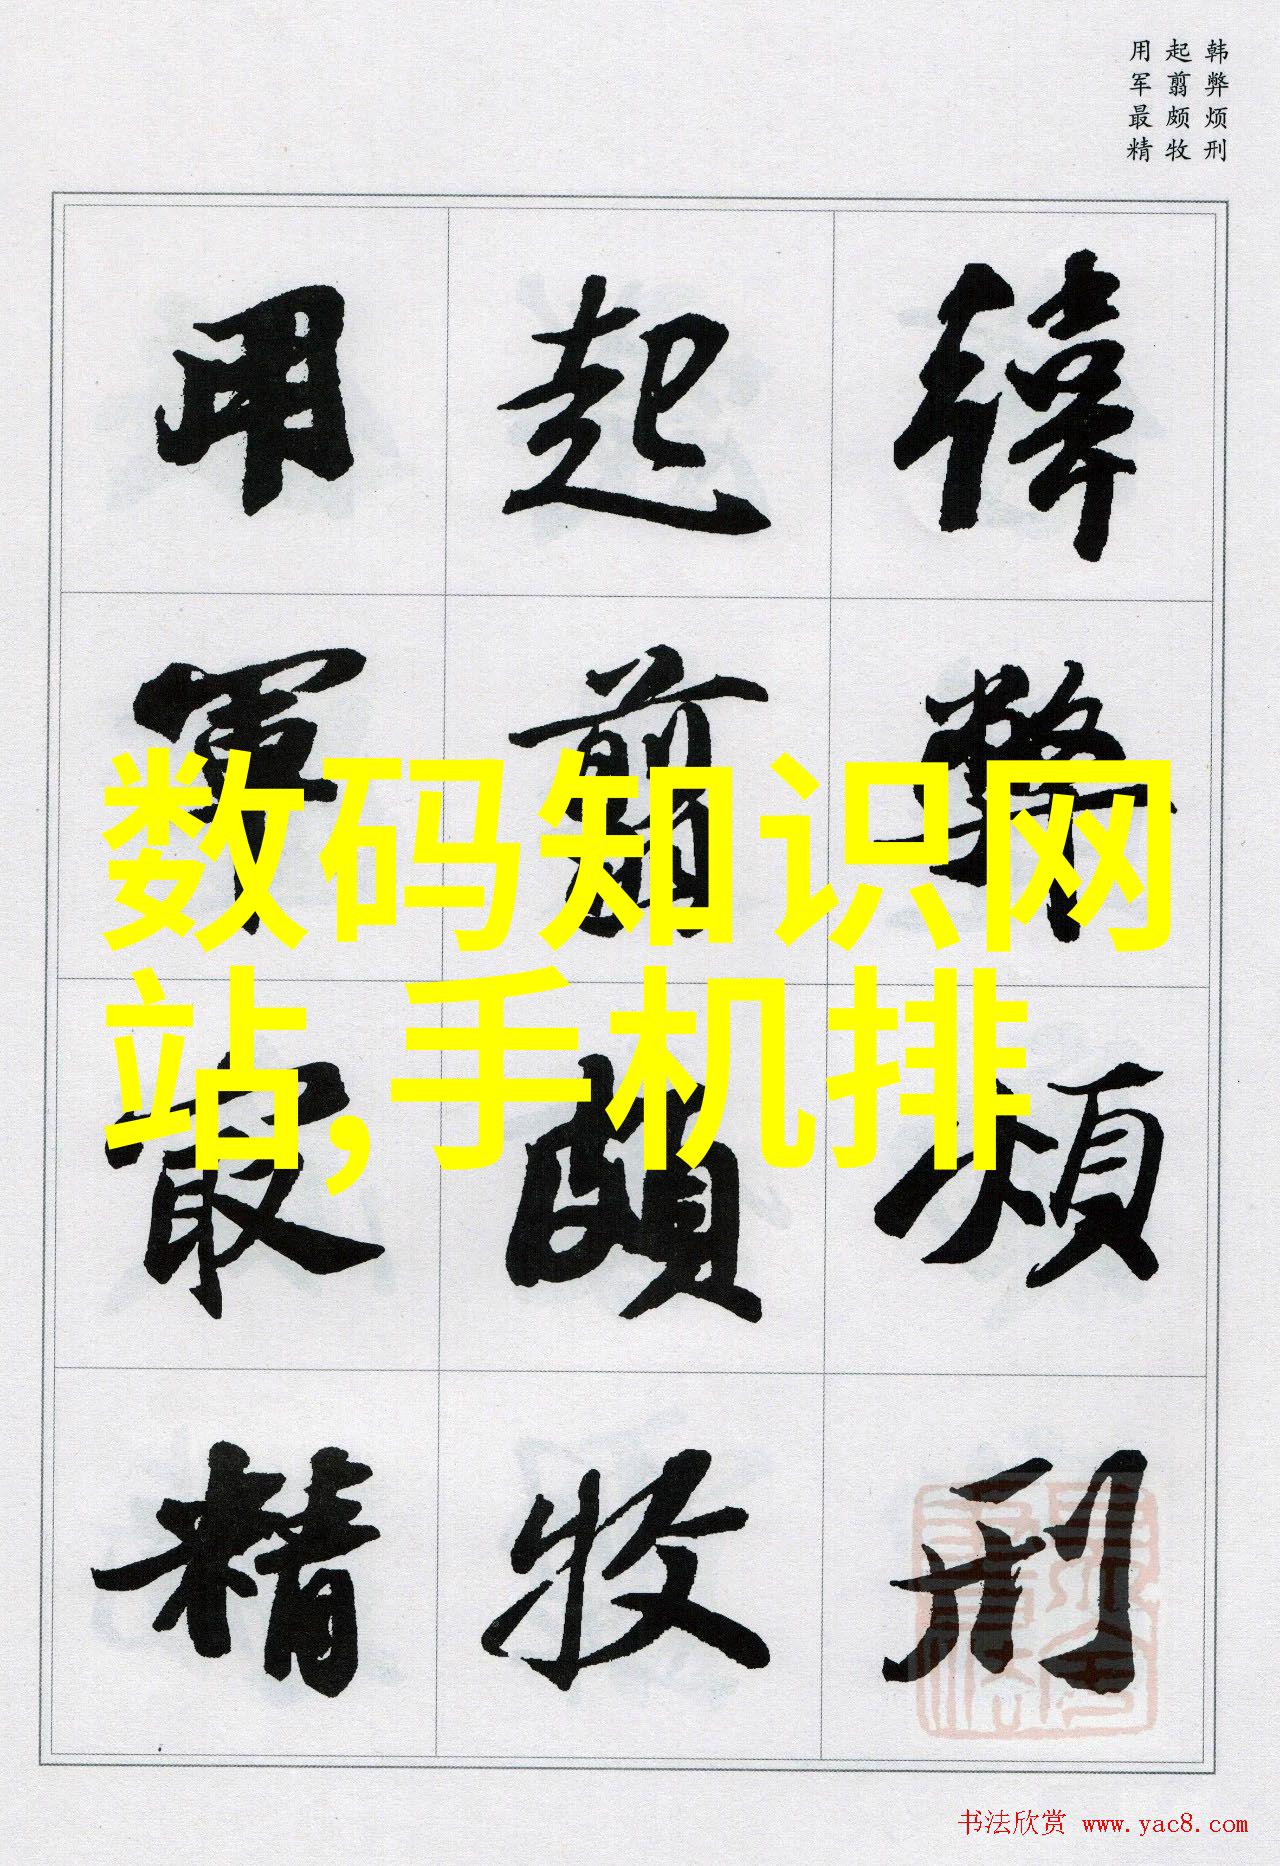 韩弊烦刑
起翦颇牧
用军最精
韓弊煩刑
起翦頗牧
用軍最精
数码知识网
站,手机排
书法欣赏 www.yac8.com